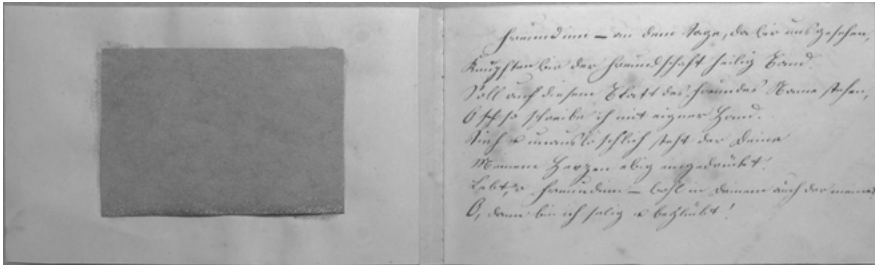 Freundinn – an dem Tage, da wir uns gesehen,
Knüpften wir der Freundschaft heilig Band.
Soll auf diesem Blatt des Freundes Name stehen,
O so schreibe ich mit eigner Hand.
Tief u unauslöschlich steht der Deine
Meinem Herzen ewig eingedrückt!
Lebt, o Freundinn – wohl in Deinem auch der meine
O, dann bin ich selig u beglückt!